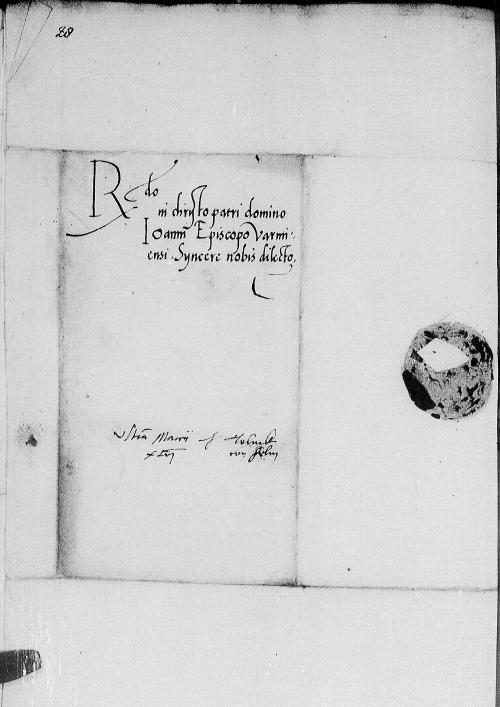 28
Rdo
in christo patri domino
Ioanni Episcopo Varmi-
ensi. Syncere nobis dilecto.
Marcij